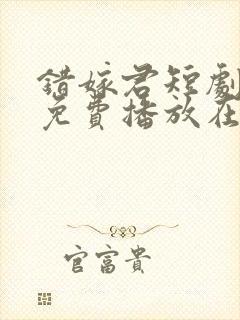 錯嫁君短劇
免費播放在
官富貴